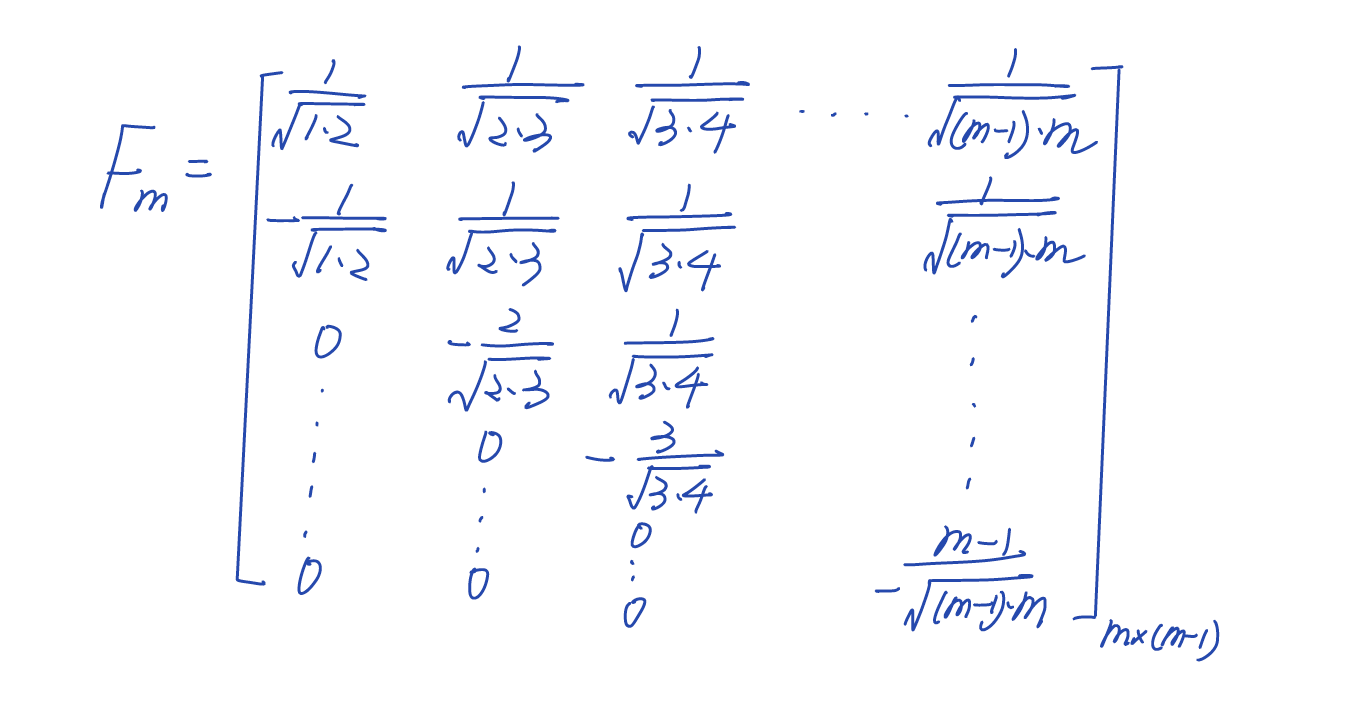 F_m = [ 1/√(1·2)  1/√(2·3)  1/√(3·4)  · · · · ·  1/√((m-1)·m) ]
-1/√(1·2)  1/√(2·3)  1/√(3·4)  1/√((m-1)·m)
0  -2/√(2·3)  1/√(3·4)  ·
⋮  0  -3/√(3·4)  ⋮
⋮  ⋮  0  ⋮
0  0  ⋮  -(m-1)/√((m-1)·m)
0
m×(m-1)